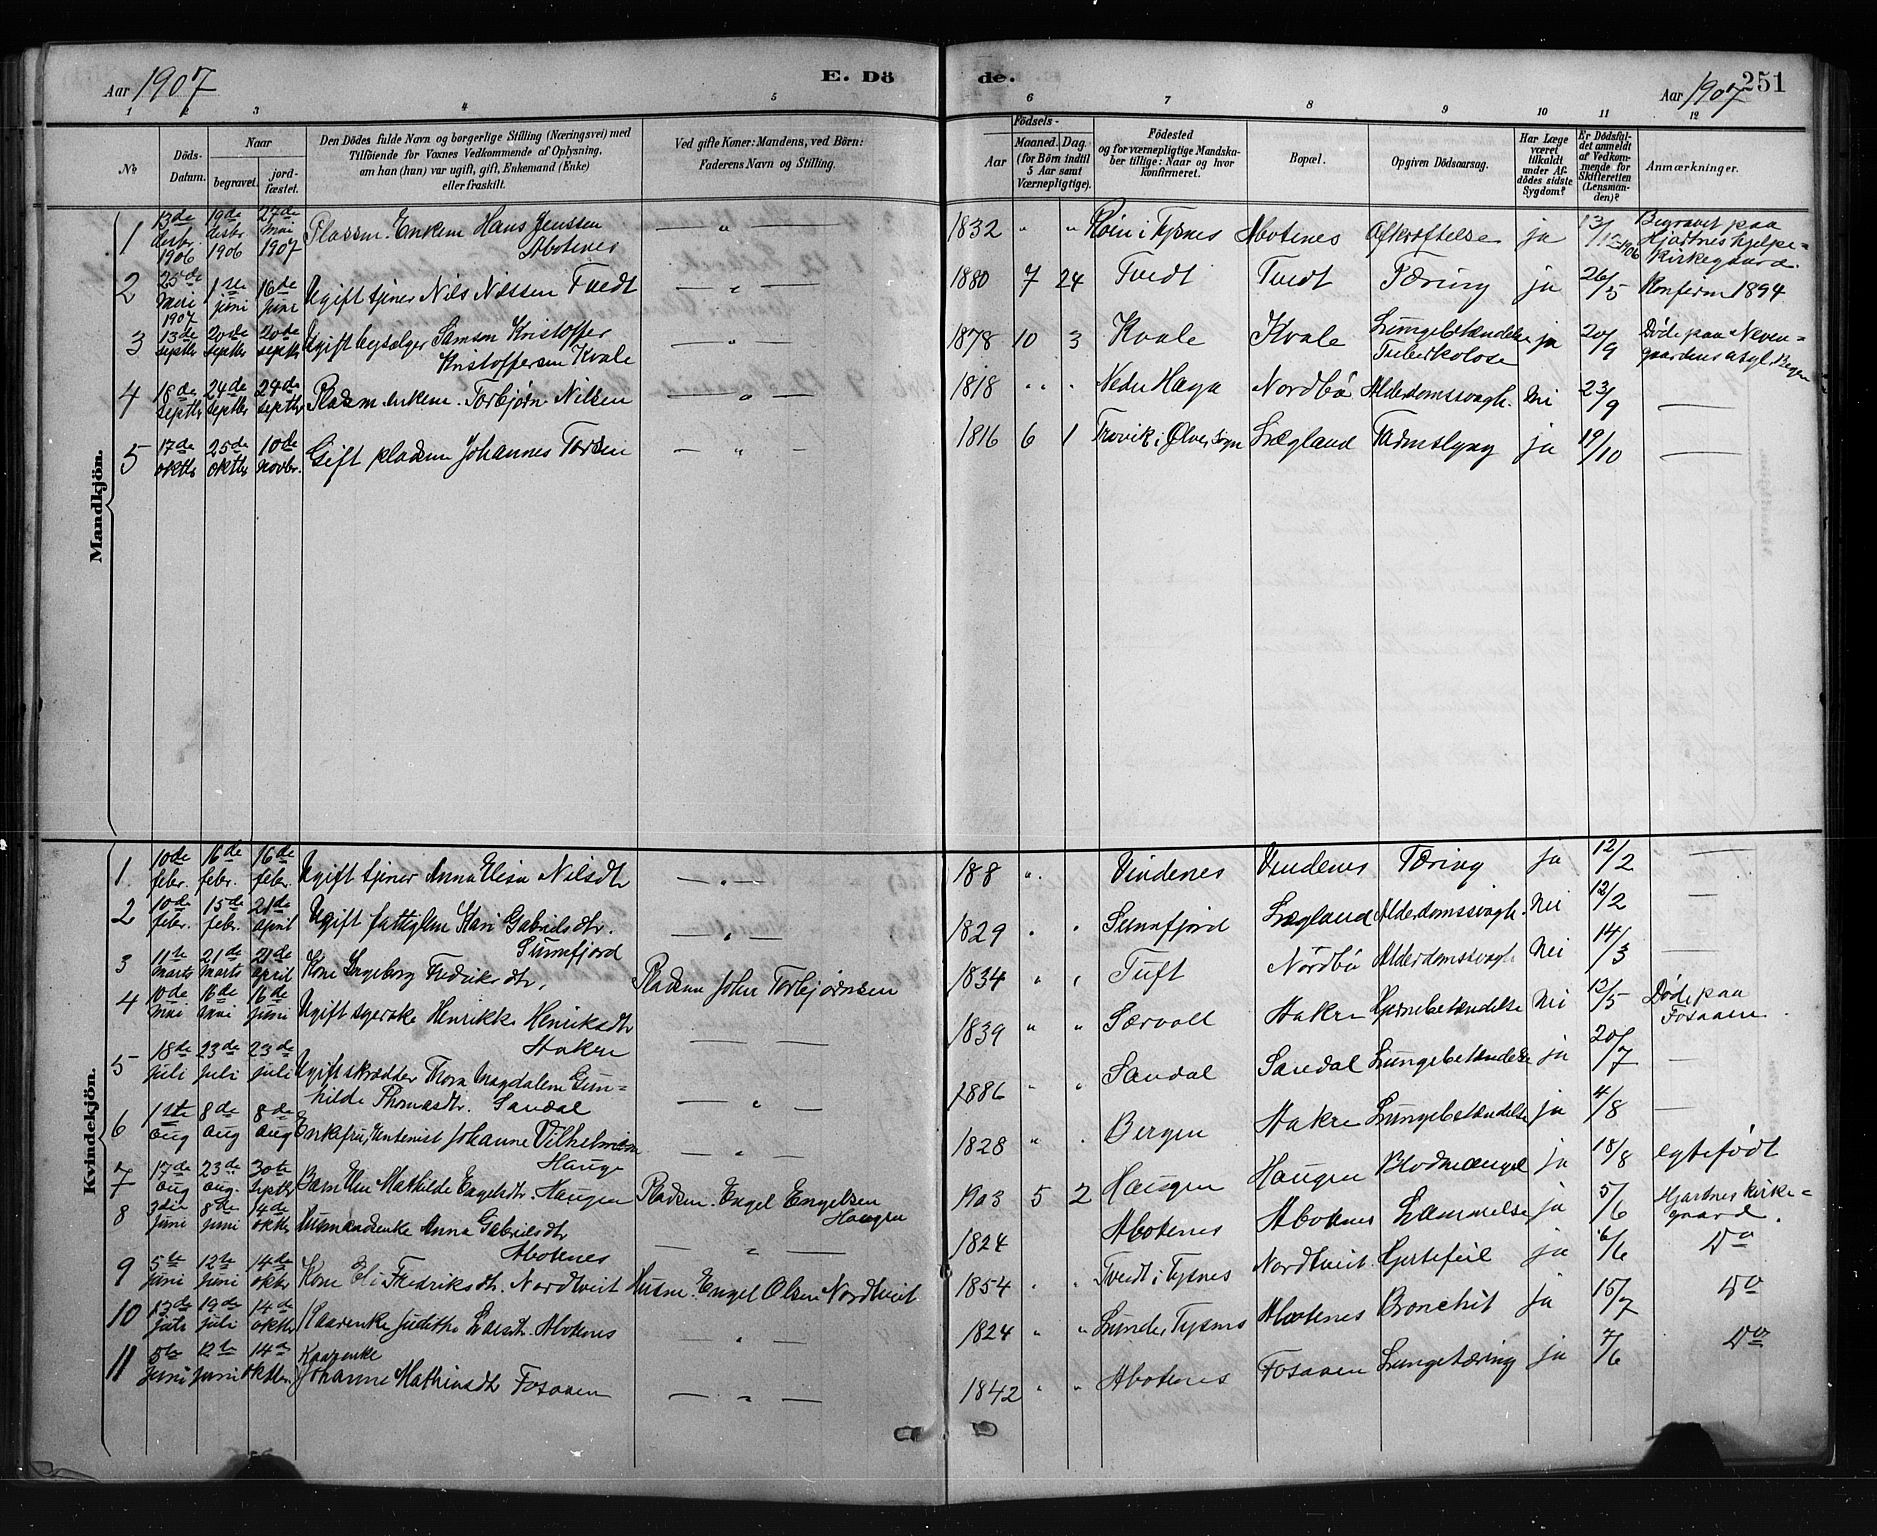 Aar 1907
E. Dö
de.
Aar 1907
251
1 2 3 4 5 6 7 8 9 10 11 12
No.
Döds-
Datum.
Naar
begravet.
jord-
fæstet.
Den Dödes fulde Navn og borgerlige Stilling (Næringsvei) med
Tilföiende for Voxnes Vedkommende af Oplysning,
om han (hun) var ugift, gift, Enkemand (Enke)
eller fraskilt.
Ved gifte Koner: Mandens, ved Börn:
Faderens Navn og Stilling.
Födsels-
Aar
Maaned. Dag.
(for Börn indtil
5 Aar samt
Værnepligtige).
Födested
og for værnepligtige Mandska-
ber tillige: Naar og hvor
konfirmeret.
Bopæl.
Opgiven Dödsaarsag.
Har Læge
været
tilkaldt
under Af-
dödes sidste
Sygdom?
Er Dödsfal-
det anmeldt
af Vedkom-
mende for
Skifteretten
(Lensman-
den)?
Anmærkninger.
Mandkjön.
1 13de desbr. 1906 19de desbr 1906 27de mai 1907 Plassm. Enkem Hans Jenssen Abotenes — " — 1832 " " i Tysnes Abotenes Afkræftelse ja 13/12 1906 Begravet paa Hjartnes hjelpe-kirkegaard.
2 25de Mai 1907 1ste juni 16de juni Ugift tjener Nils Nilssen Tvedt — " — 1880 7 24 Tvedt Tvedt Tæring ja 26/5 Konferm 1894
3 13de septbr 20de septbr 20de septbr Ugift Samson Kristoffer Kristoffersen Kvale — " — 1878 10 3 Kvale Kvale Lungebetændelse Tuberkolose ja 20/9 Døde paa Neven-gaardens asyl. Bergen
4 18de septbr 24de septbr 29de septbr Pladsm. enkem. Torbjørn Nilsen — " — 1818 " " Nedre Haga Nordbø Alderdomssvagh. Nei 23/9 —
5 17de oktbr 25de oktbr 10de novbr. Gift pladsm Johannes Torsen — " — 1816 6 1 Trovik i Ølve sogn Lægland Tarmslyng ja 19/10 —
Kvindekjön.
1 10de febr. 16de febr. 16de febr. Ugift tjener Anna Elisa Nilsdtr — " — 188 " Vindenes Vindenes Tæring ja 12/2 —
2 10de febr. 15de febr. 21de april Ugift fattiglem Kari Gabrielsdtr. Sunnfjord — " — 1829 " " Sunnfjord Lægland Alderdomssvagh. Nei 12/2 —
3 11te marts 21de marts 21de april Kone Ingeborg Fredriksdtr, Pladsm John Torbjørnsen 1834 " " Tuft Nordbø Alderdomssvagh Nei 14/3 —
4 10de mai 16de mai 16de juni Ugift syerske Henrikke Henriksdtr Hakre — " — 1839 " " Særvold Hakre Hjernebetændelse Nei 13/5 Døde paa Fosaaen.
5 18de juli 23de juli 23de juli Ugift skrædder Thora Magdalena Gun-hilde Thomasdtr. Sandal — " — 1886 " " Sandal Sandal Lungebetændelse ja 20/7 —
6 1ste aug 8de aug 8de aug Enkefru, Johanne Vilhelmine Hauge — " — 1828 " " Bergen Hakre Lungebetændelse ja 4/8 —
7 17de aug 23de aug. 30te septbr Barn Mathilde Engelsdtr. Haugen Pladsm. Engel Engelsen Haugen 1903 5 2 Haugen Haugen Blodmangel ja 18/8 egtefødt
8 3die juni 8de juni 14de oktbr Anna Gabrielsdtr Abotenes — " — 1824 Abotenes Abotenes Lammelse ja 5/6 Hjartnes kirke-gaard.
9 5te juni 12te juni 14de oktbr Kone Eli Fredriksdtr. Nordtveit Husm. Engel Olsen Nordtveit 1854 " " Tvedt i Tysnes Nordtveit Hjertefeil ja 6/6 Do
10 13de juli 19de juli 14de oktbr Kaarenke Judithe Larsdtr. Abotenes — " — 1824 " " Lunde i Tysnes Abotenes Bronchit ja 15/7 Do
11 5te juni 12te juni 14de oktbr. Kaarenke Johanne Mathiasdtr Fosaaen — " — 1842 " " Abotenes Fosaaen Lungetæring ja 7/6 Do